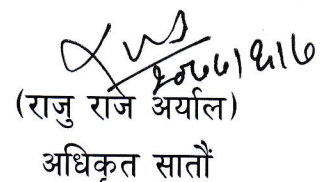 २०७७।९।७
(राजु राज अर्याल)
अधिकृत सातौं